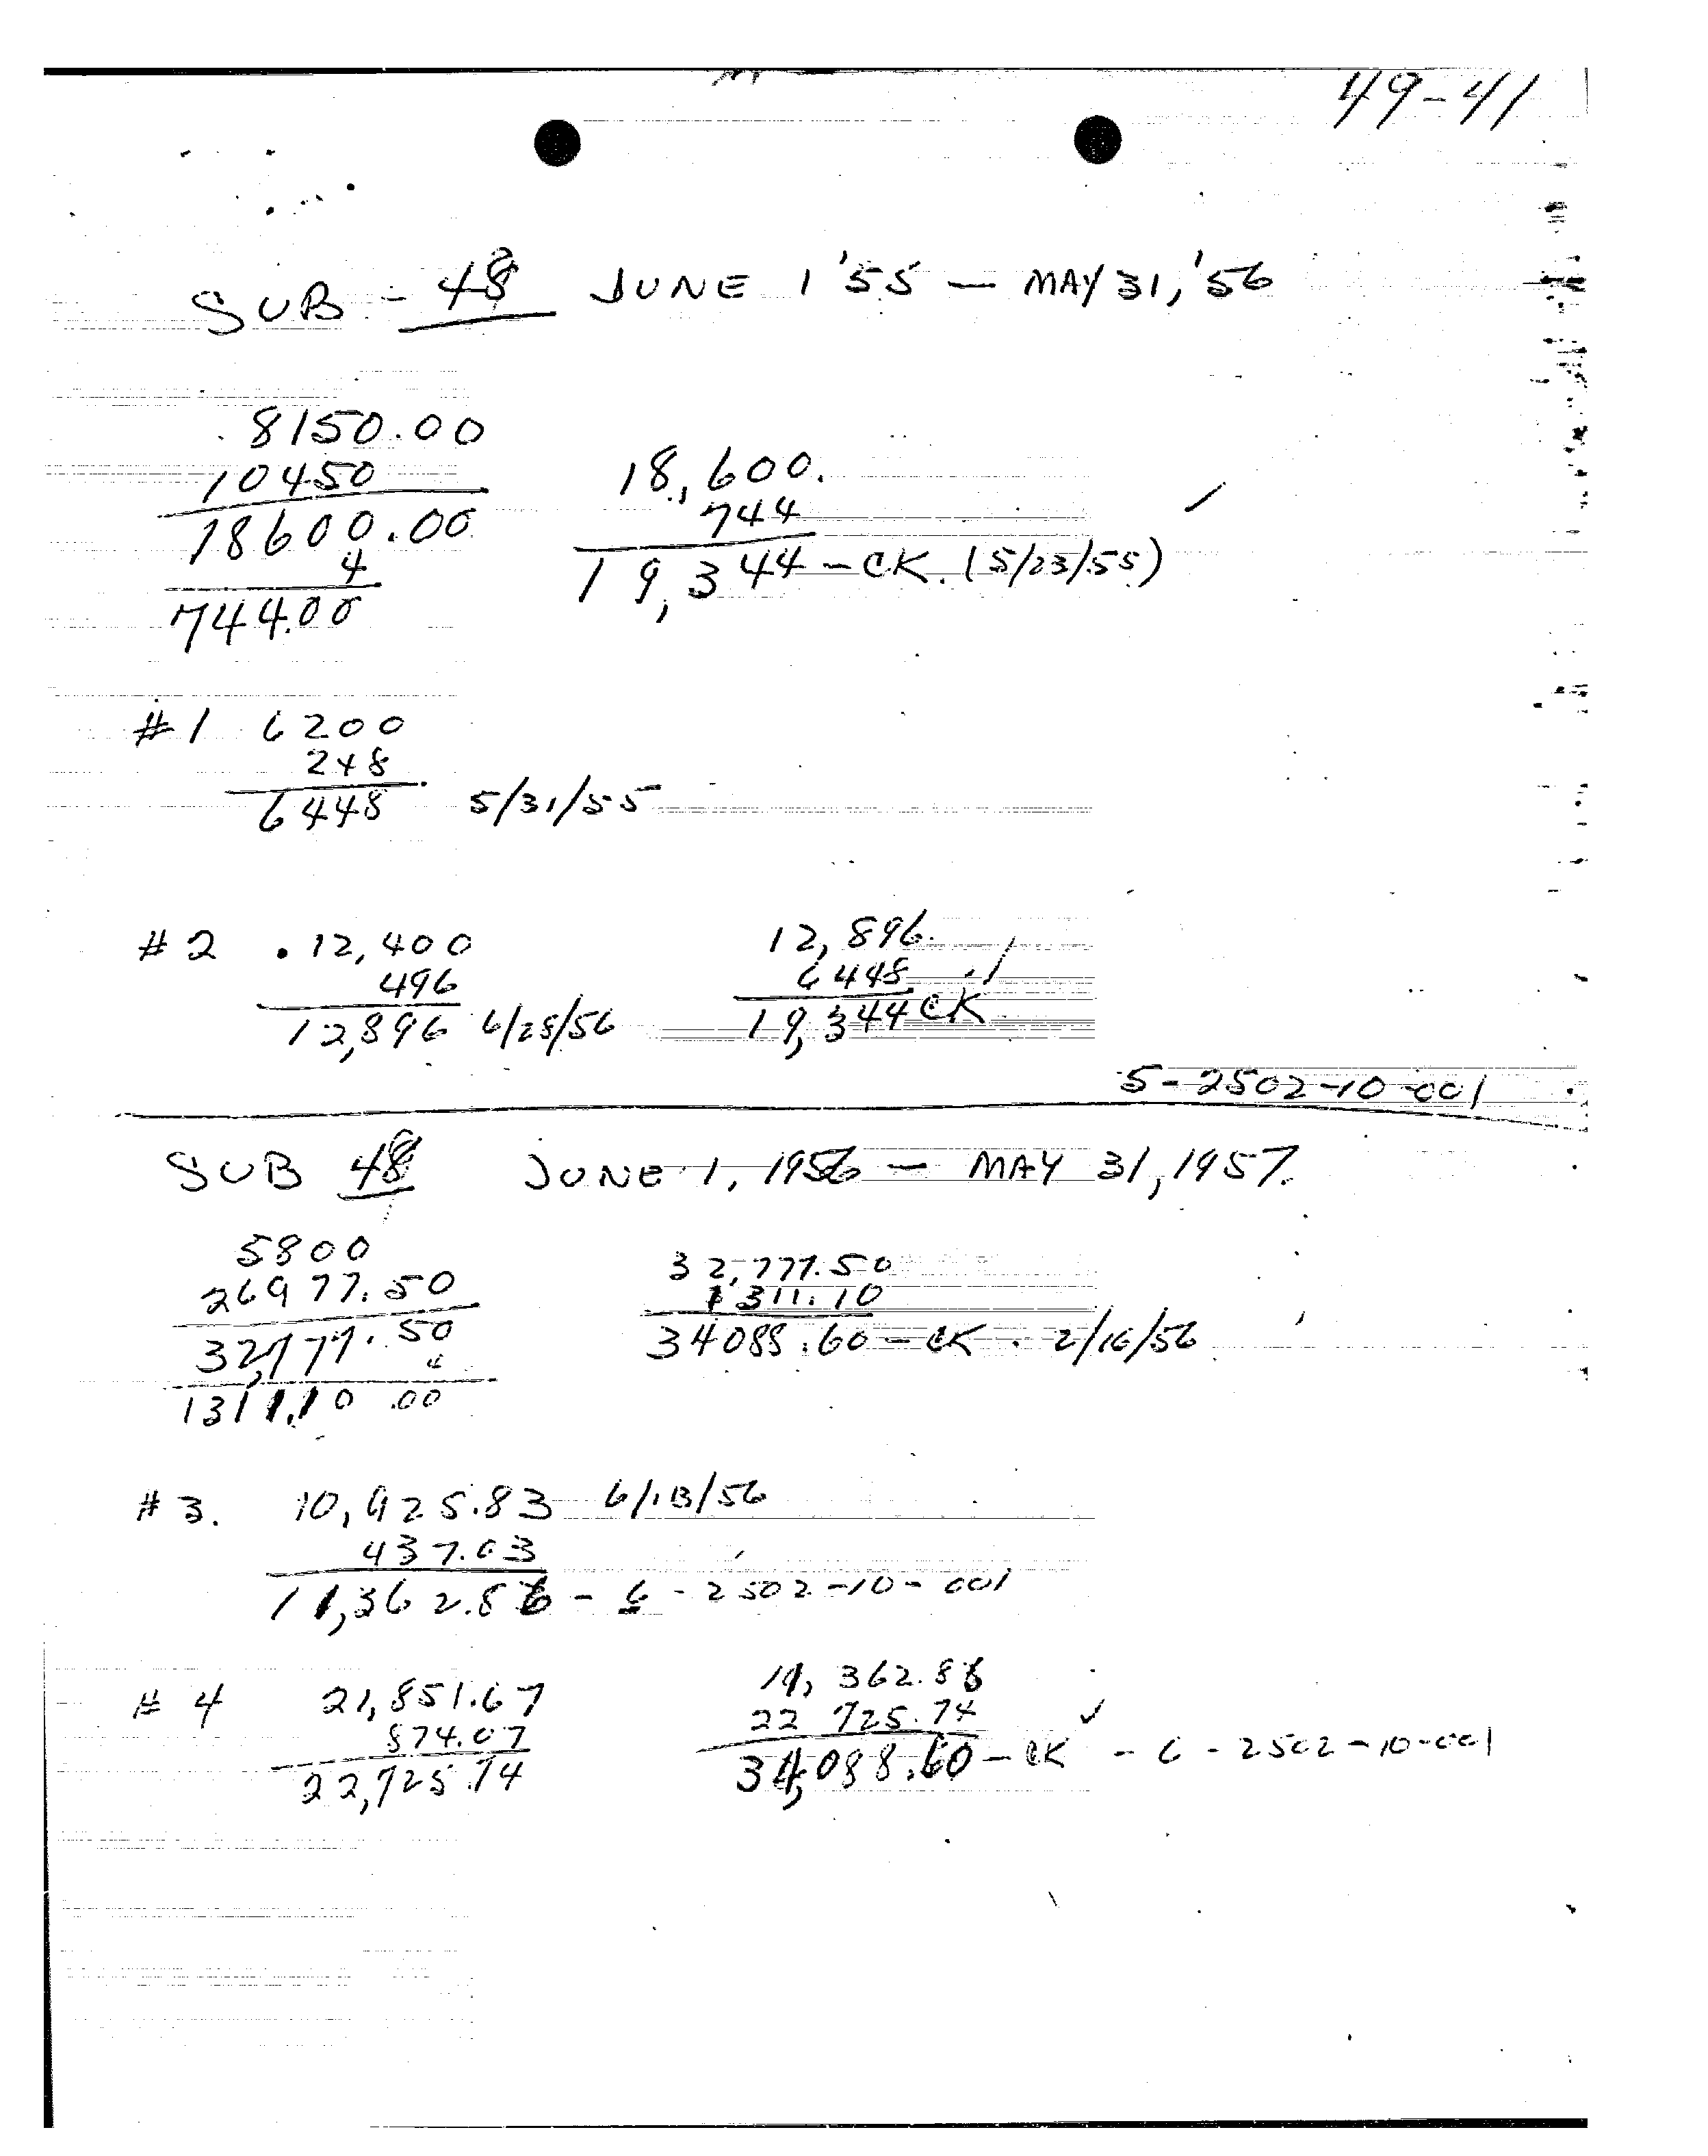 49-41
SUB - 48 JUNE 1 '55 — MAY 31, '56
8150.00
10450
18600.00
4
744.00
18,600.
744
19,344 - CK. (5/23/55)
#1 6200
248
6448 5/31/55
#2 12,400
496
12,896 6/28/56
12,896.
6448
19,344 CK
5-2502-10-001
SUB 48 JUNE 1, 1956 — MAY 31, 1957.
5800
26977.50
32,777.50
4
1311.10 .00
32,777.50
1311.10
34088.60 - CK. 2/16/56
#3. 10,925.83 6/13/56
437.03
11,362.86 - 6 - 2502-10-001
#4 21,851.67
874.07
22,725.74
11,362.86
22 725.74
34,088.60 - CK - 6 - 2502-10-001